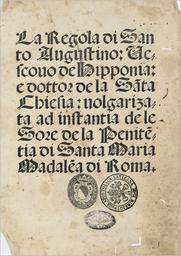 La Regola di San
to Augustino: Ve-
scouo de Hipponia:
e dottor de la Sãta
Chiesia: uolgariza-
ta ad instantia de le
Sore de la Penitẽ-
tia di Santa Maria
Madalẽa di Roma.